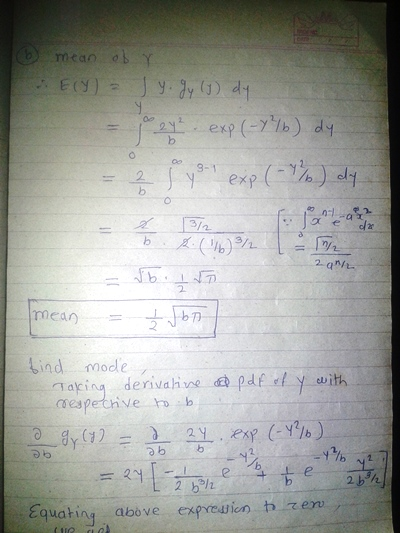 (b) mean of Y
∴ E(Y) = ∫_Y y. g_Y(y) dy
= ∫_0^∞ 2y²/b . exp(-y²/b) dy
= 2/b ∫_0^∞ y^(3-1) exp(-y²/b) dy
= 2/b Γ3/2 / 2.(1/b)^3/2 [∵ ∫_0^∞ x^(n-1) e^(-a x²) dx
= Γn/2 / 2a^n/2
= √b . 1/2 √π
mean = 1/2 √bπ
find mode,
Taking derivative pdf of Y with
respective to b
∂/∂b g_Y(y) = ∂/∂b 2y/b . exp(-y²/b)
= 2y [-1/2 b^3/2 e^(-y²/b) + 1/b e^(-y²/b) y²/2b^3/2]
Equating above expression to zero,
we get